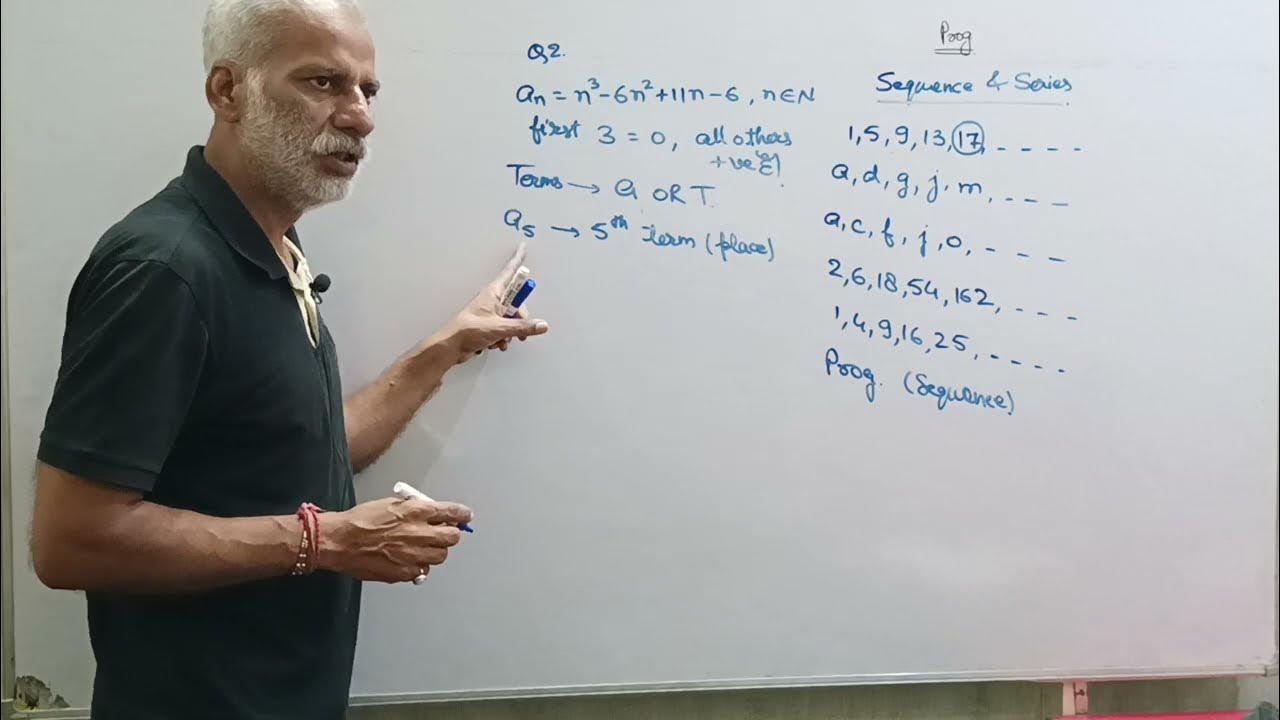 Q2.
aₙ = n³-6n²+11n-6, n∈N
first 3 = 0, all others
+ve
Terms → a OR T
a₅ → 5th term (place)
Prog
Sequence & Series
1, 5, 9, 13, 17, - - - -
a, d, g, j, m, - - -
a, c, f, j, o, - - -
2, 6, 18, 54, 162, - - - -
1, 4, 9, 16, 25, - - - -
Prog. (Sequence)